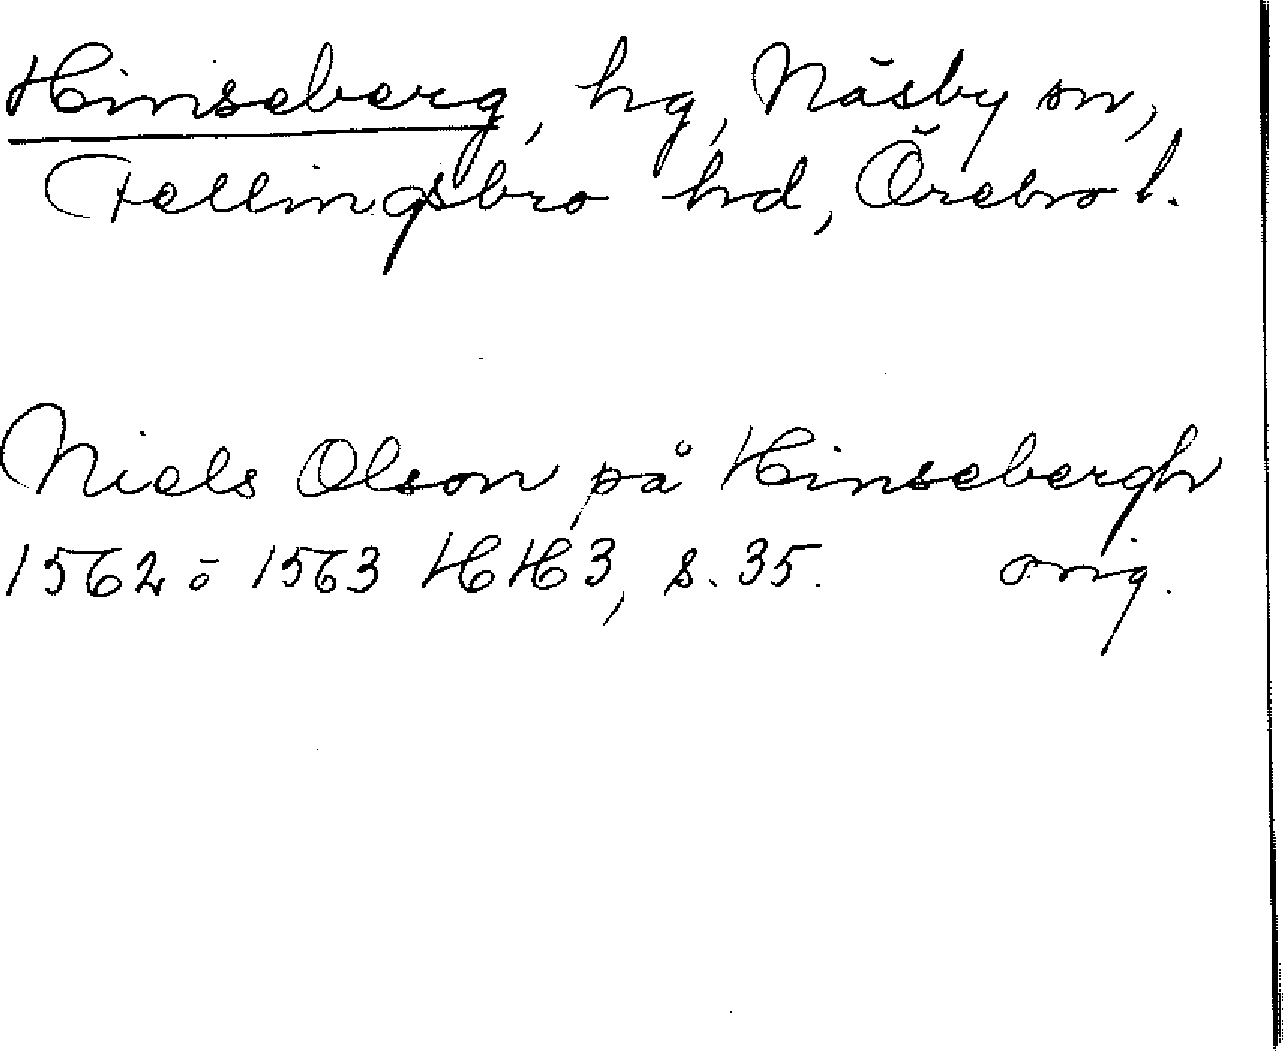 Hinseberg, hg, Näsby sn,
Fellingsbro hd, Örebro l.
Niels Olson på Hinsebergh
1562 ö 1563 HH3, s. 35. orig.